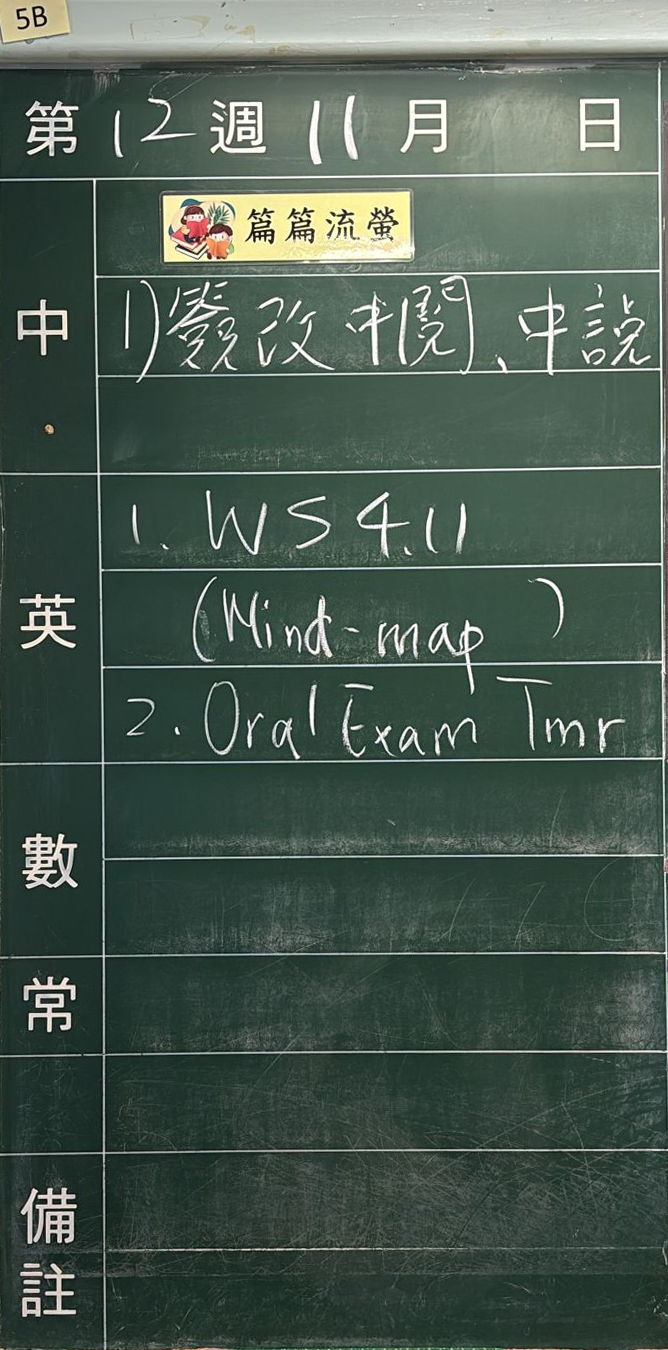 5B
第12週 11月 日
篇篇流螢
中
1)簽改中閱、中說
1. WS 4.11
英
(Mind-map )
2. Oral Exam Tmr
數
常
備註